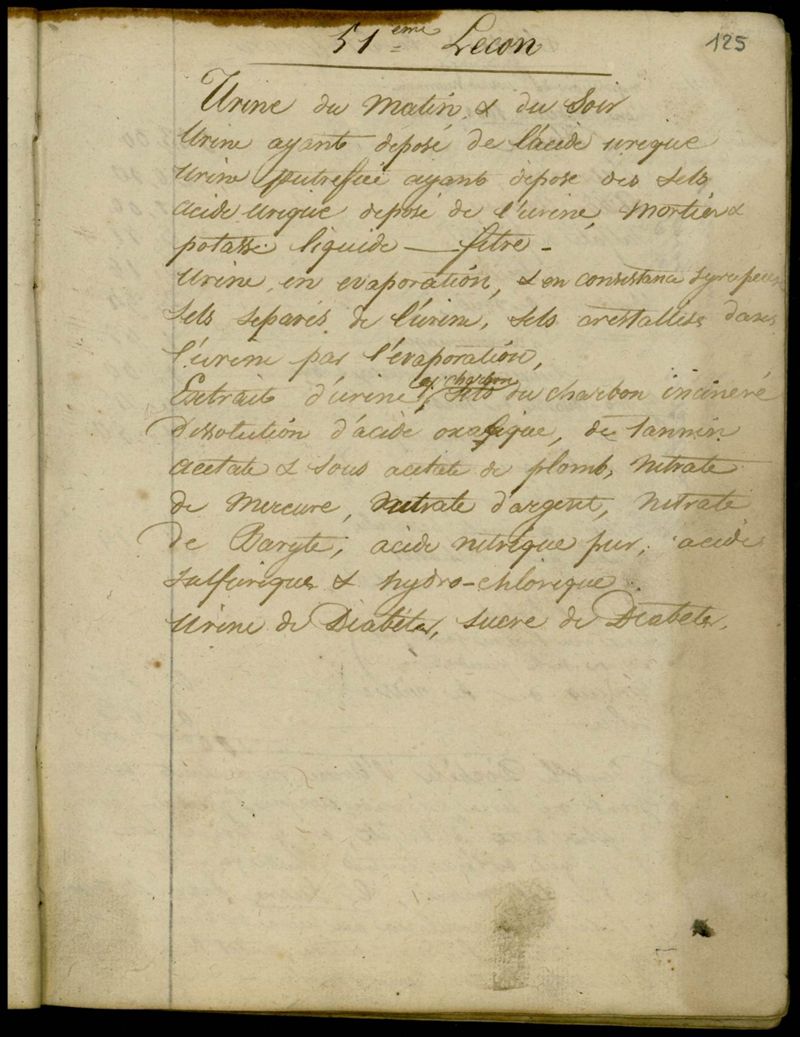 51ème Lecon
125
Urine du Matin & du Soir
Urine ayant déposé de l'acide urique
Urine putrefiée ayant déposé des sels
acide urique déposé de l'urine, Mortier &
potasse liquide — filtre -
Urine en evaporation, & en consistance syrupeuse
Sels séparés de l'urine, sels cristallisés dans
l'urine par l'évaporation,
Extrait d'urine, du charbon incineré
Dissolution d'acide oxalique, de tannin
acetate & sous acetate de plomb, nitrate
de Mercure, nitrate d'argent, nitrate
de Baryte, acide nitrique pur, acide
sulfurique & hydro-chlorique
Urine de Diabétes, sucre de Diabetes.